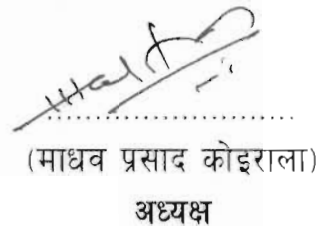 (माधव प्रसाद कोइराला)
अध्यक्ष